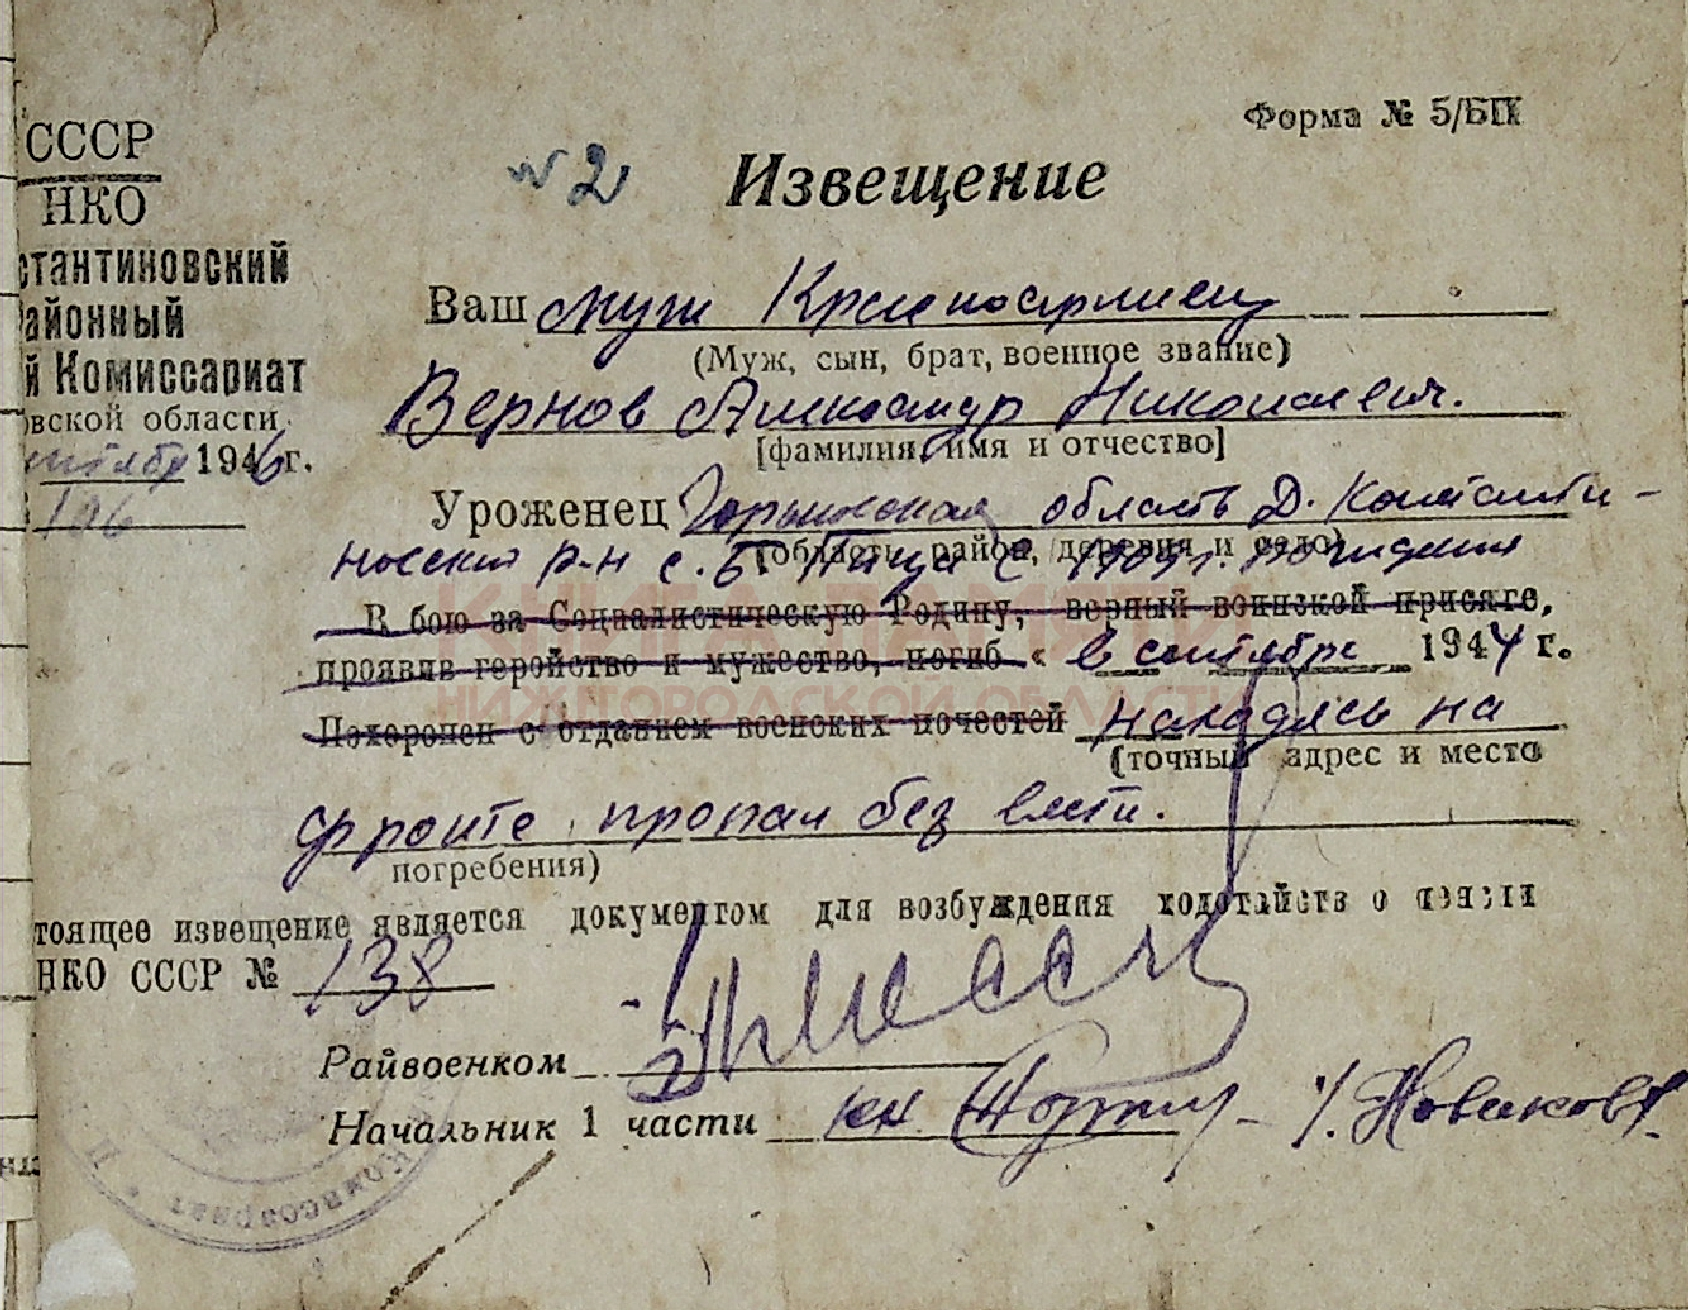 Форма № 5/БП
СССР
НКО
стантиновский
айонный
й Комиссариат
овской области
нтября 1946 г.
106
№ 2
Извещение
Ваш муж Красноармеец
(Муж, сын, брат, военное звание)
Вернов Александр Николаевич.
[фамилия, имя и отчество]
Уроженец Горьковская область Д. Константи-
(область, район, деревня и село)
новский р-н с. Б с 1909 г. рождения
В бою за Социалистическую Родину, верный воинской присяге,
проявив геройство и мужество, погиб « в сентябре 1944 г.
Похоронен с отданием воинских почестей находясь на
(точный адрес и место
фронте пропал без вести.
погребения)
тоящее извещение является документом для возбуждения ходатайств о пенсии
НКО СССР № 138
Райвоенком
Начальник 1 части
Новиков
Комиссариат
КНИГА ПАМЯТИ
НИЖЕГОРОДСКОЙ ОБЛАСТИ